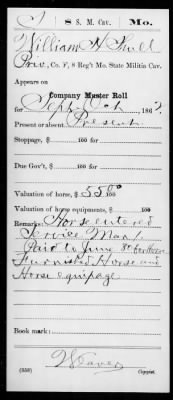 S 8 S. M. Cav. Mo.
William H Shull
Priv, Co. F, 8 Reg't Mo. State Militia Cav.
Appears on
Company Muster Roll
for Sept & Oct, 186
Present or absent Present
Stoppage, $ 100 for
Due Gov't, $ 100 for
Valuation of horse, $ 55 00/100
Valuation of horse equipments, $ 100
Remarks: Horse entered
Service Mar 1
Paid to June 30 for Horse
Furnished Horse and
Horse equipage
Book mark:
Weaver
(358) Copyist.